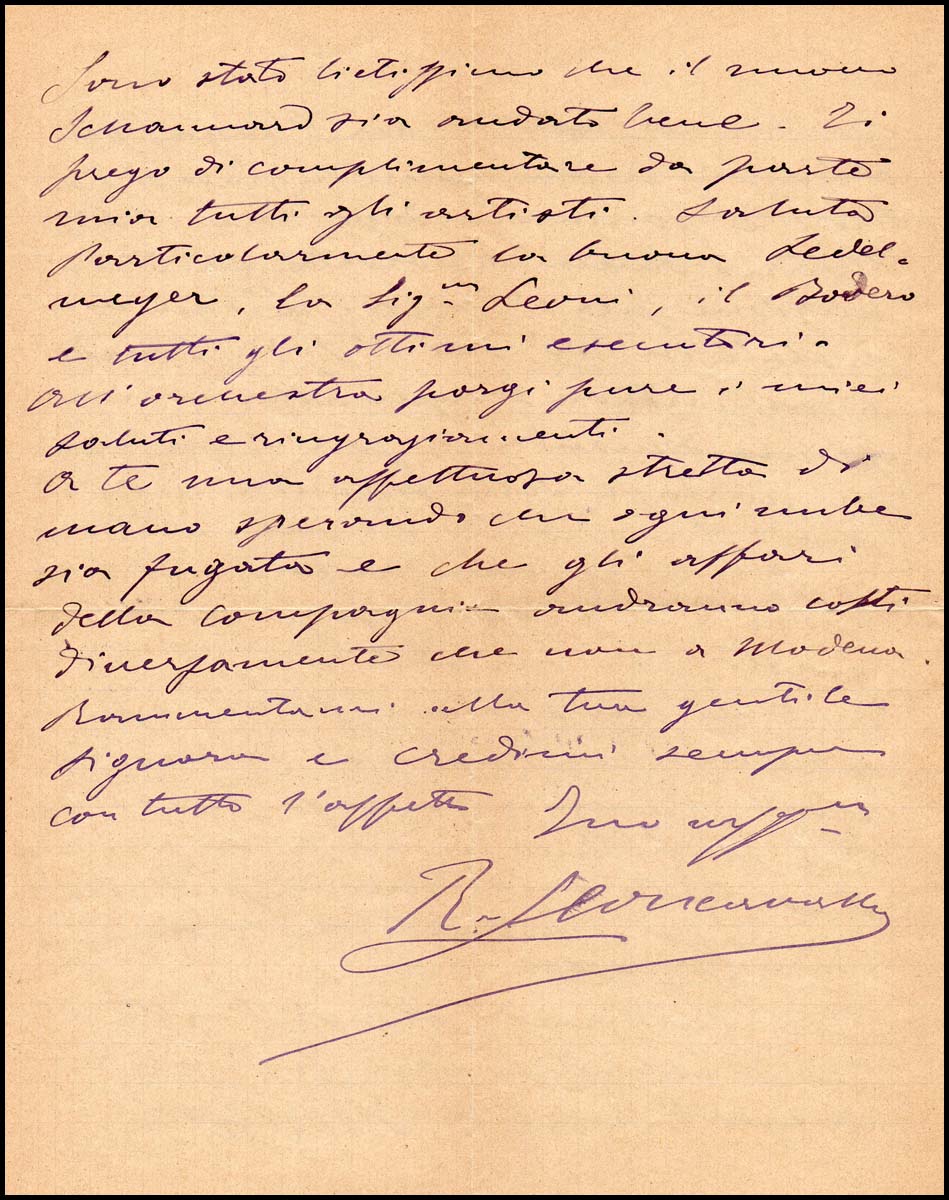 Sono stato lietissimo che il nuovo
Schaunard sia andato bene. Ti
prego di complimentare da parte
mia tutti gli artisti. Saluta
particolarmente la buona Sedel=
meyer, la Sig.na Leoni, il Bodero
e tutti gli ottimi esecutori.
All'orchestra porgi pure i miei
saluti e ringraziamenti.
A te una affettuosa stretta di
mano sperando che ogni nube
sia fugata e che gli affari
della compagnia andranno costì
diversamente che non a Modena.
Rammentami alla tua gentile
signora e credimi sempre
con tutto l'affetto Tuo
R. Leoncavallo